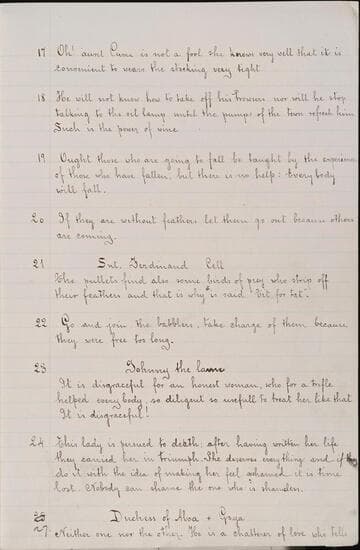 17 Oh! aunt Curra is not a fool she knows very well that it is
convenient to wears the stocking very tight
18 He will not know how to take off his trowers nor will he stop
talking to the oil lamp until the pump of the town refresh him
Such is the power of wine
19 Ought those who are going to fall be taught by the experience
of those who have fallen, but there is no help: Everybody
will fall.
20 If they are without feathers let them go out because others
are coming.
21 Snt. Ferdinand Cell
The pullets find also some birds of prey who strip off
their feathers and that is why is said "Tit for tat".
22 Go and join the babblers, take charge of them because
they were free too long.
23 Johnny the lame
It is disgraceful for an honest woman, who for a trifle
helped everybody, so diligent so usefull to treat her like that
It is disgraceful!
24 This lady is persued to death, after having written her life
they carried her in triumph. She deserves everything and if they
do it with the idea of making her feel ashamed it is time
lost. Nobody can shame the one who is shameless.
Duchess of Alva + Goya
27 Neither one nor the other. He is a chatterer of love who tells